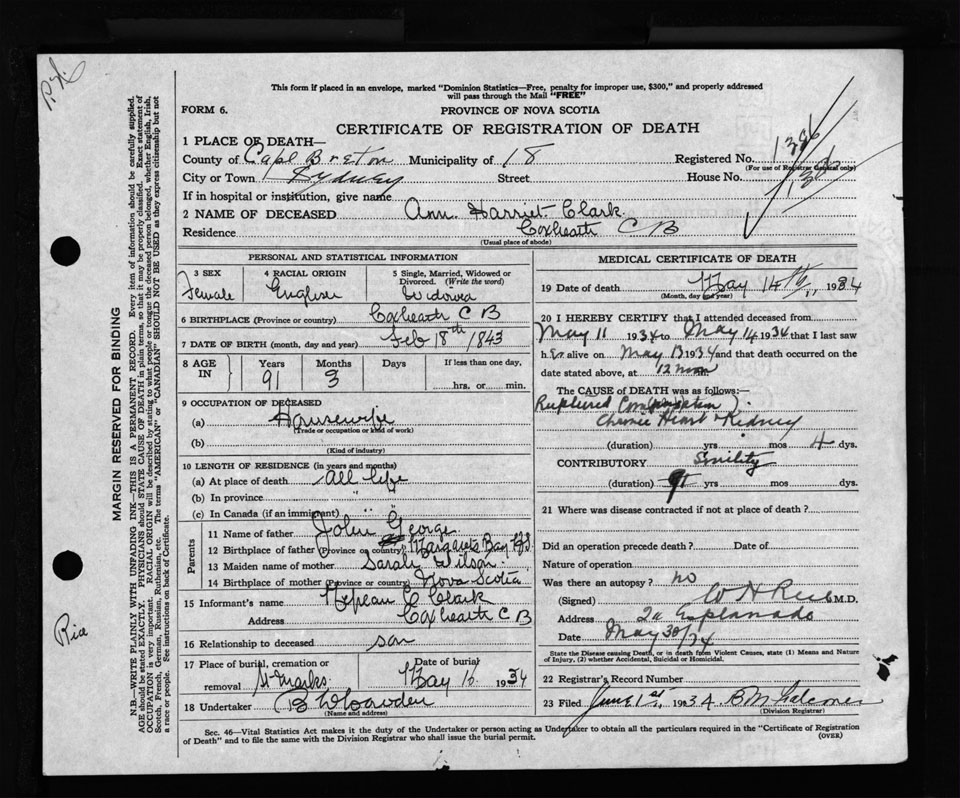 This form if placed in an envelope, marked "Dominion Statistics—Free, penalty for improper use, $300," and properly addressed
will pass through the Mail "FREE"
FORM 6.
PROVINCE OF NOVA SCOTIA
CERTIFICATE OF REGISTRATION OF DEATH
1 PLACE OF DEATH—
County of Cape Breton Municipality of 18 Registered No. 1386
(For use of Registrar General only)
City or Town Sydney Street House No.
If in hospital or institution, give name
2 NAME OF DECEASED Ann Harriet Clark
Residence Coxheath C B
(Usual place of abode)
PERSONAL AND STATISTICAL INFORMATION
3 SEX 4 RACIAL ORIGIN 5 Single, Married, Widowed or Divorced. (Write the word)
Female English Widowed
6 BIRTHPLACE (Province or country) Coxheath C B
7 DATE OF BIRTH (month, day and year) Feb 18th 1843
8 AGE IN Years Months Days If less than one day,
91 3 hrs. or min.
9 OCCUPATION OF DECEASED
(a) Housewife
(Trade or occupation or kind of work)
(b)
(Kind of industry)
10 LENGTH OF RESIDENCE (in years and months)
(a) At place of death All life
(b) In province "
(c) In Canada (if an immigrant) "
Parents
11 Name of father John George
12 Birthplace of father (Province or country) Margarets Bay N S
13 Maiden name of mother Sarah Wilson
14 Birthplace of mother (Province or country) Nova Scotia
15 Informant's name C Clark
Address Coxheath C B
16 Relationship to deceased son
17 Place of burial, cremation or removal Date of burial
St Marks May 16 1934
18 Undertaker
(Name and address)
MEDICAL CERTIFICATE OF DEATH
19 Date of death May 14th, 1934
(Month, day and year)
20 I HEREBY CERTIFY that I attended deceased from
May 11 1934 to May 14 1934 that I last saw
h er alive on May 13 1934 and that death occurred on
date stated above, at 12 noon
The CAUSE OF DEATH was as follows:—
Ruptured Compensation
Chronic Heart & Kidney
(duration) yrs mos 4 dys.
CONTRIBUTORY Senility
(duration) 91 yrs mos dys.
21 Where was disease contracted if not at place of death?
Did an operation precede death? Date of
Nature of operation
Was there an autopsy? no
(Signed) W H M.D.
Address Esplanade
Date May 30/34
State the Disease causing Death, or in death from Violent Causes, state (1) Means and Nature of Injury, (2) whether Accidental, Suicidal or Homicidal.
22 Registrar's Record Number
23 Filed June 1st, 1934
(Division Registrar)
Sec. 46—Vital Statistics Act makes it the duty of the Undertaker or person acting as Undertaker to obtain all the particulars required in the "Certificate of Registration
of Death" and to file the same with the Division Registrar who shall issue the burial permit.
(OVER)
MARGIN RESERVED FOR BINDING
N.B.—WRITE PLAINLY WITH UNFADING INK—THIS IS A PERMANENT RECORD. Every item of information should be carefully supplied.
AGE should be stated EXACTLY. PHYSICIANS should STATE CAUSE OF DEATH in plain terms, so that it may be properly classified. Exact statement of
OCCUPATION is very important. RACIAL ORIGIN will be described by stating to what people or tongue the deceased person belonged, whether English, Irish,
Scotch, French, German, Russian, Ruthenian, etc. The terms "AMERICAN" or "CANADIAN" SHOULD NOT BE USED as they express citizenship but not
a race or people. See instructions on back of Certificate.